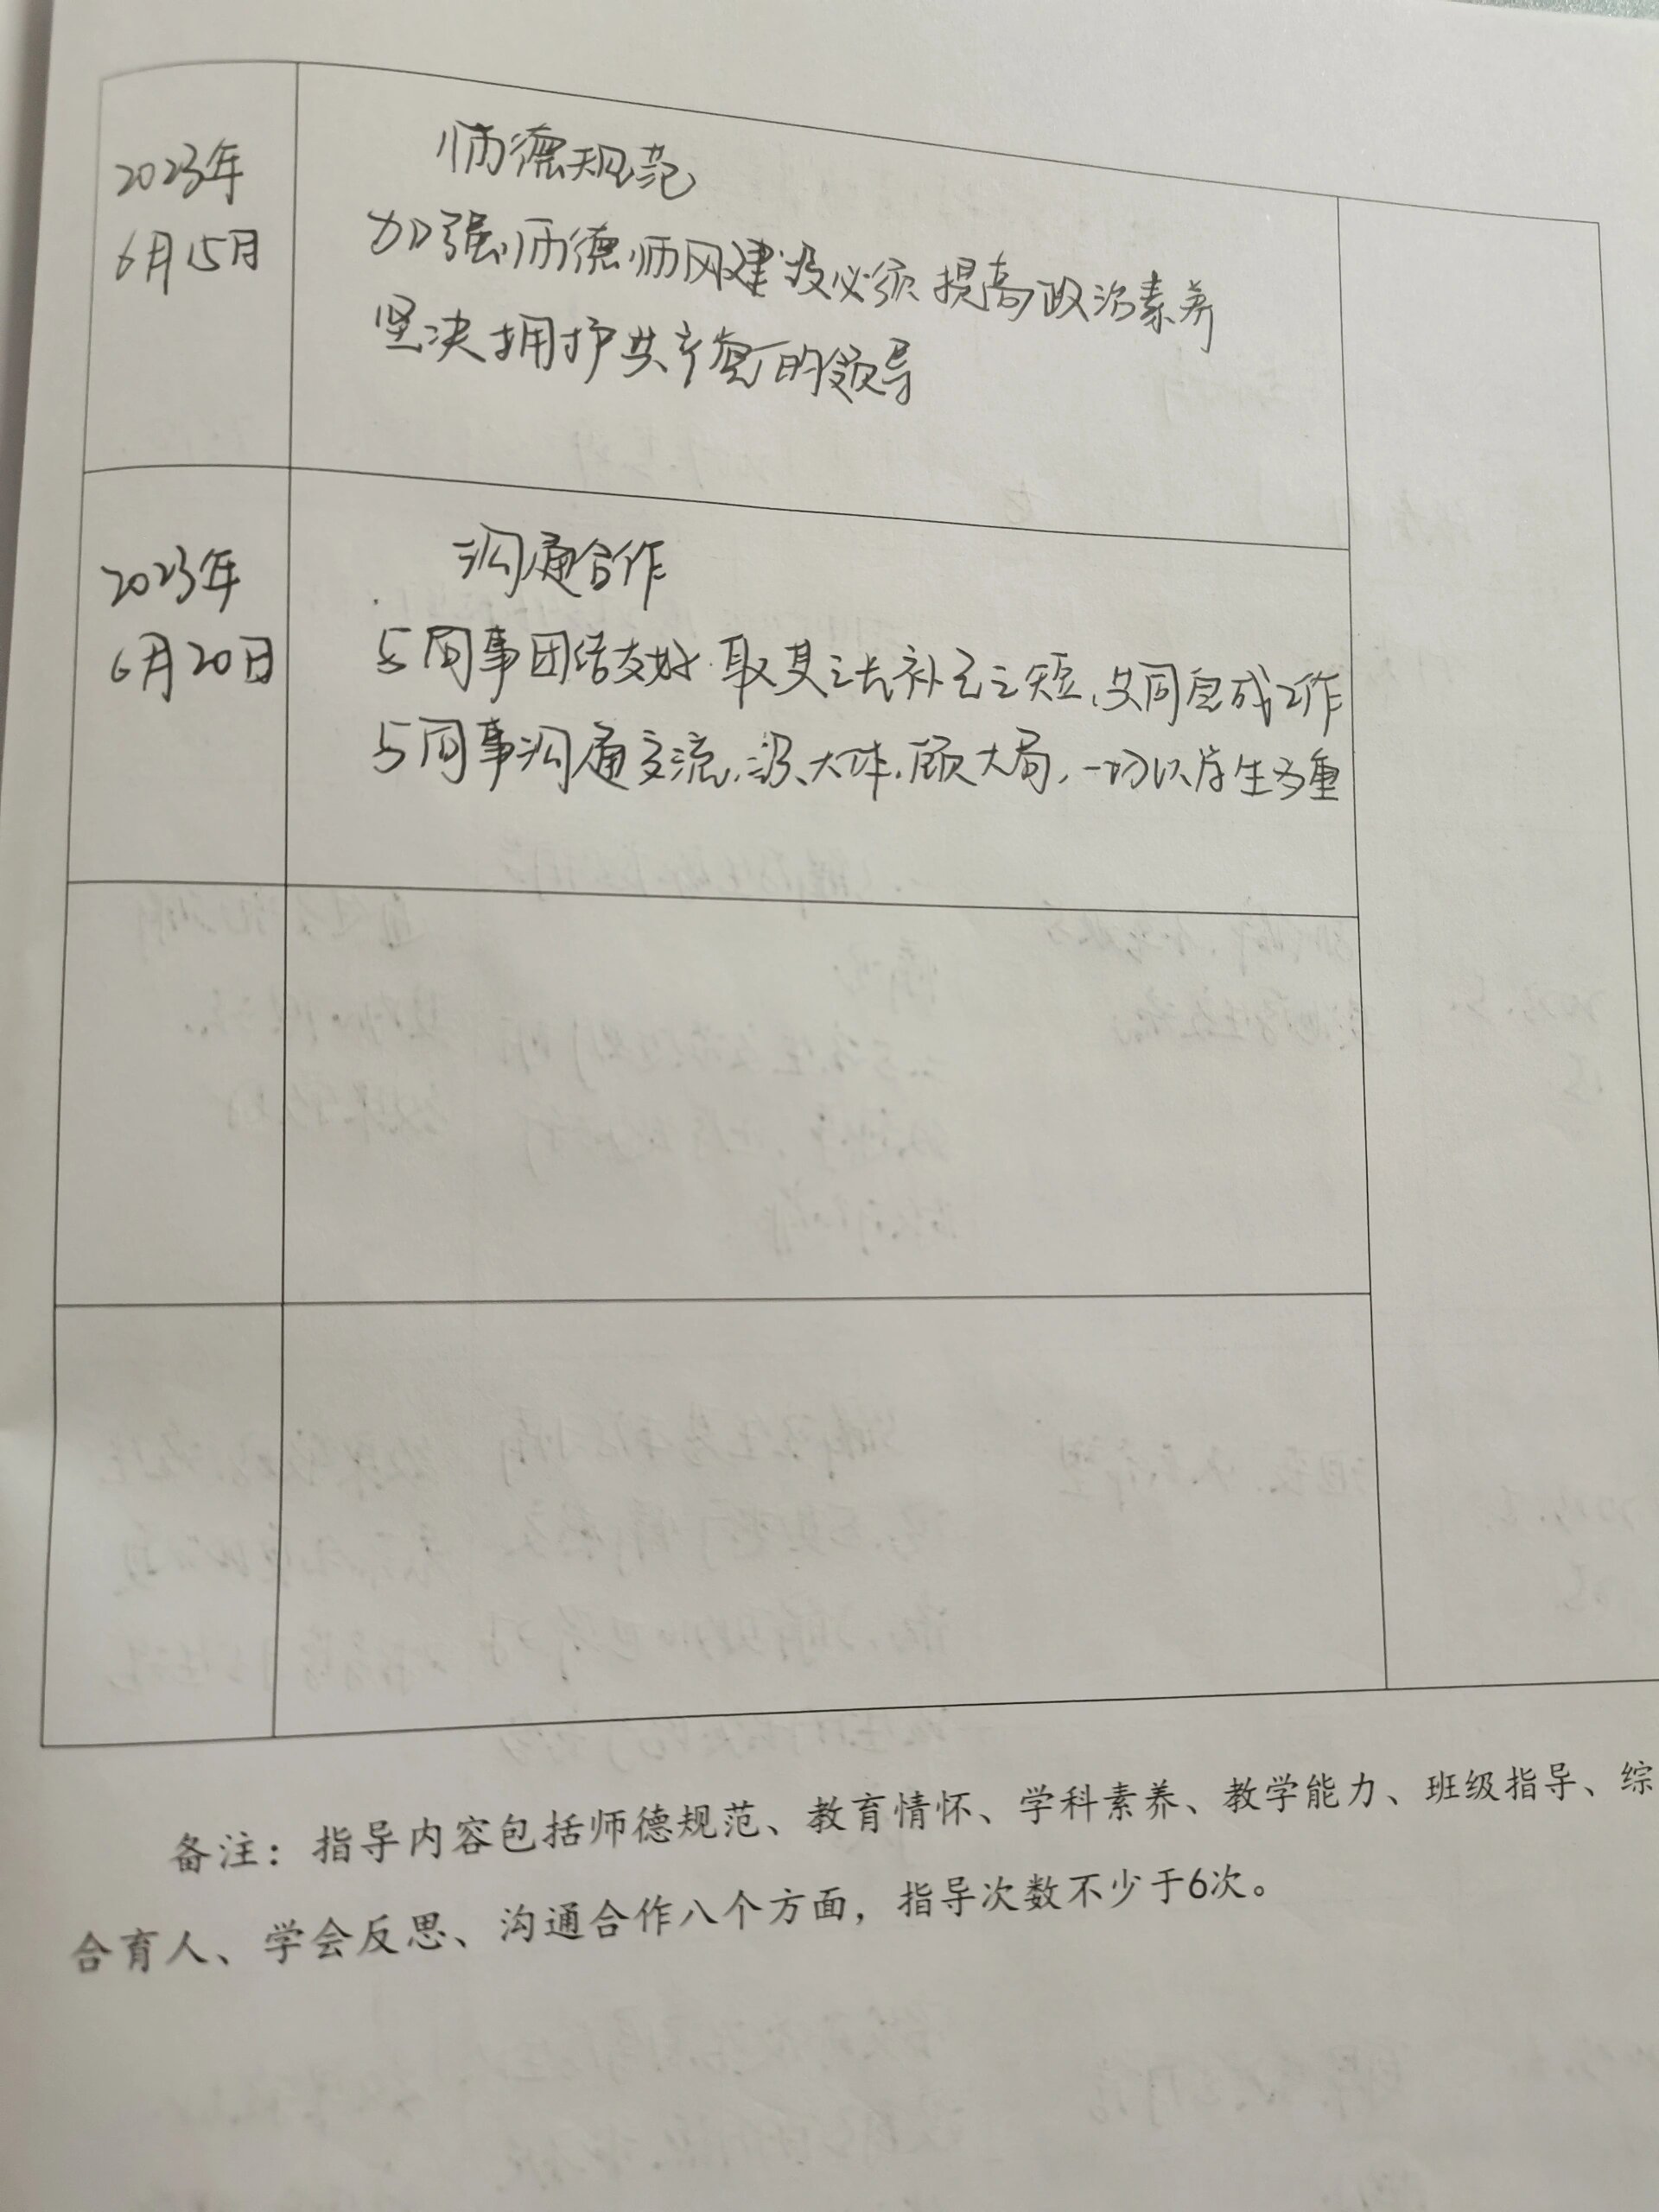 2023年
6月15日
师德规范
加强师德师风建设必须提高政治素养
坚决拥护共产党的领导
2023年
6月20日
沟通合作
与同事团结友好.取其之长补己之短.共同完成工作
与同事沟通交流.识大体.顾大局.一切以学生为重
备注：指导内容包括师德规范、教育情怀、学科素养、教学能力、班级指导、综
合育人、学会反思、沟通合作八个方面，指导次数不少于6次。